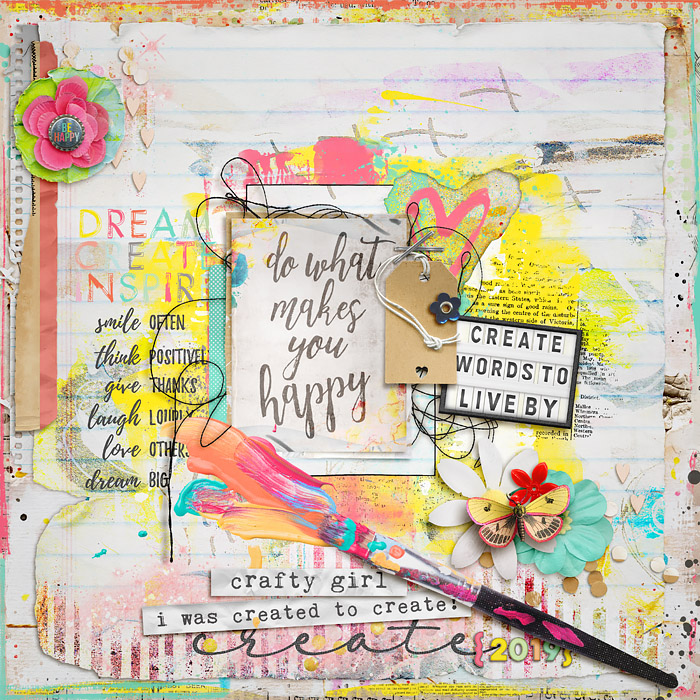 BE
HAPPY
DREAM
CREATE
INSPIRE
smile OFTEN
think POSITIVELY
give THANKS
laugh LOUDLY
love OTHERS
dream BIG
do what
makes
you
happy
CREATE
WORDS TO
LIVE BY
District.
crafty girl
i was created to create!
create {2019}